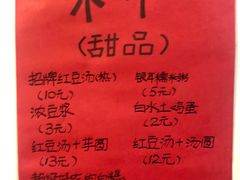 (甜品)
招牌红豆汤(热) 银耳糯米粥
(10元) (5元)
浓豆浆 白水土鸡蛋
(3元) (2元)
红豆汤+芋圆 红豆汤+汤圆
(13元) (12元)